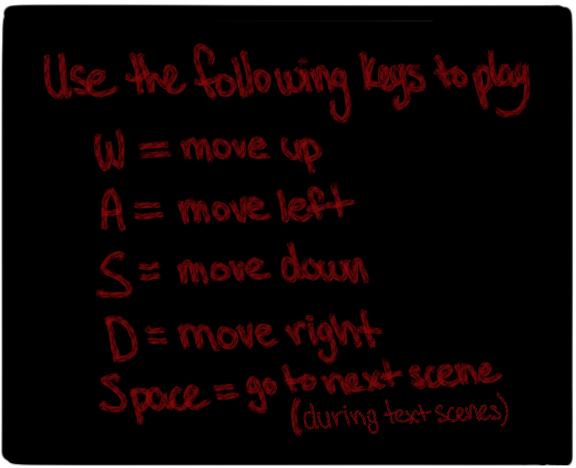 Use the following keys to play
W = move up
A = move left
S = move down
D = move right
Space = go to next scene
(during text scenes)